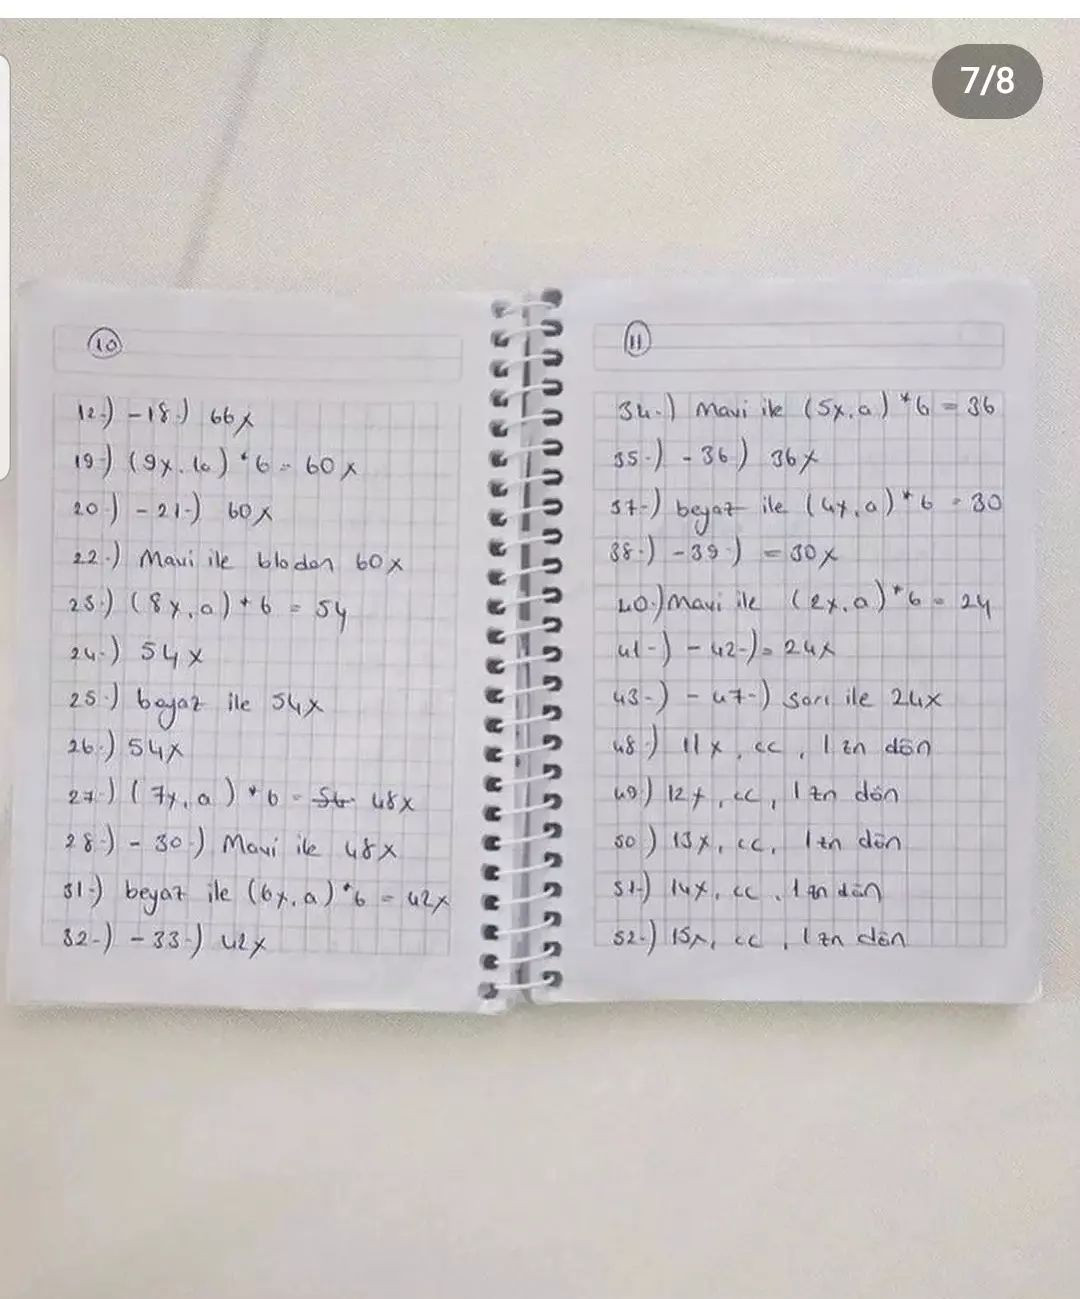 7/8
10
12-) -18-) 66x
19-) (9x, 1a) *6 = 60x
20-) - 21-) 60x
22-) Mavi ile blodan 60x
23-) (8x, a) * 6 = 54
24-) 54x
25-) beyaz ile 54x
26-) 54x
27-) (7x, a) *6 = 48x
28-) - 30-) Mavi ile 48x
31-) beyaz ile (6x, a) *6 = 42x
32-) - 33-) 42x
11
34-) Mavi ile (5x, a) *6 = 36
35-) - 36-) 36x
37-) beyaz ile (4x, a) *6 = 30
38-) -39-) = 30x
40-) Mavi ile (2x, a) *6 = 24
41-) - 42-) = 24x
43-) - 47-) sarı ile 24x
48-) 11x, cc, 1 zn dön
49-) 12x, cc, 1 zn dön
50-) 13x, cc, 1 zn dön
51-) 14x, cc, 1 zn dön
52-) 15x, cc, 1 zn dön